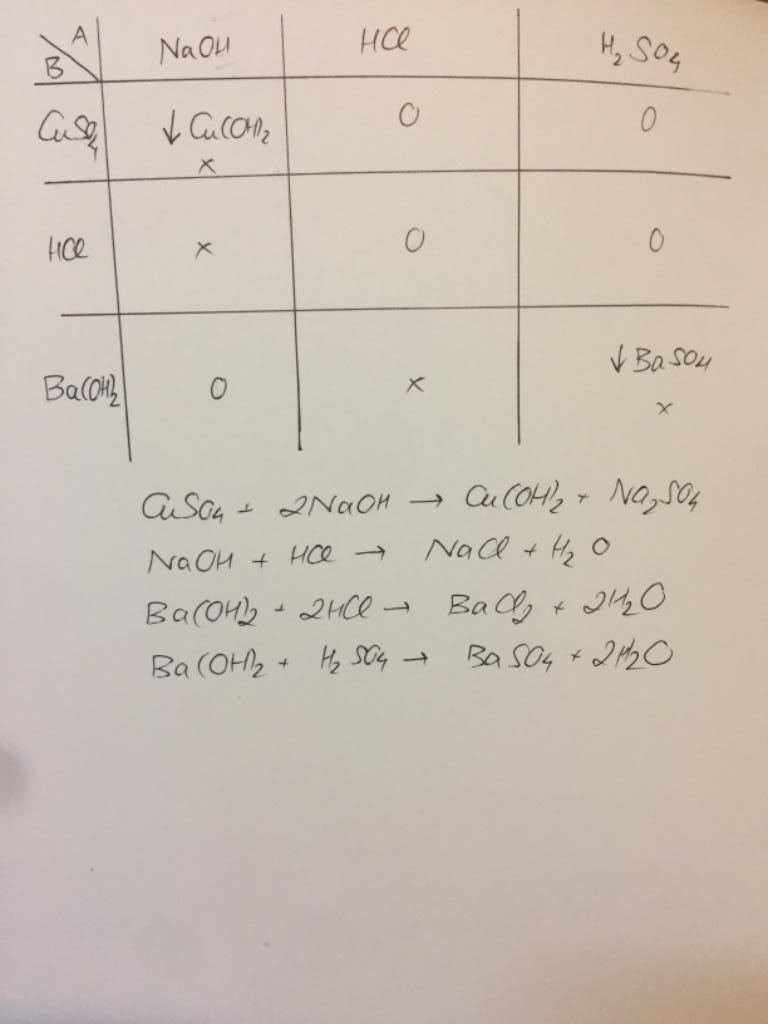 A
B
NaOH HCl H₂SO₄
CuSO₄ ↓Cu(OH)₂ O O
x
HCl x O O
↓BaSO₄
Ba(OH)₂ O x
x
CuSO₄ + 2NaOH → Cu(OH)₂ + Na₂SO₄
NaOH + HCl → NaCl + H₂O
Ba(OH)₂ + 2HCl → BaCl₂ + 2H₂O
Ba(OH)₂ + H₂SO₄ → BaSO₄ + 2H₂O